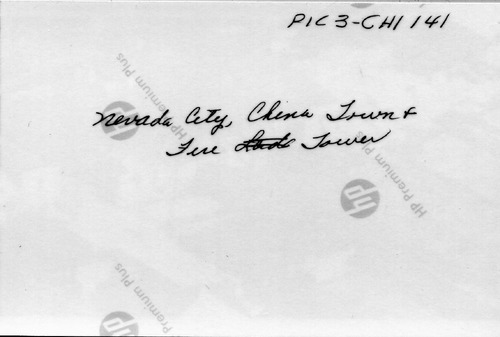 PIC 3-CHI 141
HP Premium Plus
Nevada City, China Town &
Fire Tower
hp
HP Premium Plus
HP Premium Plus
hp